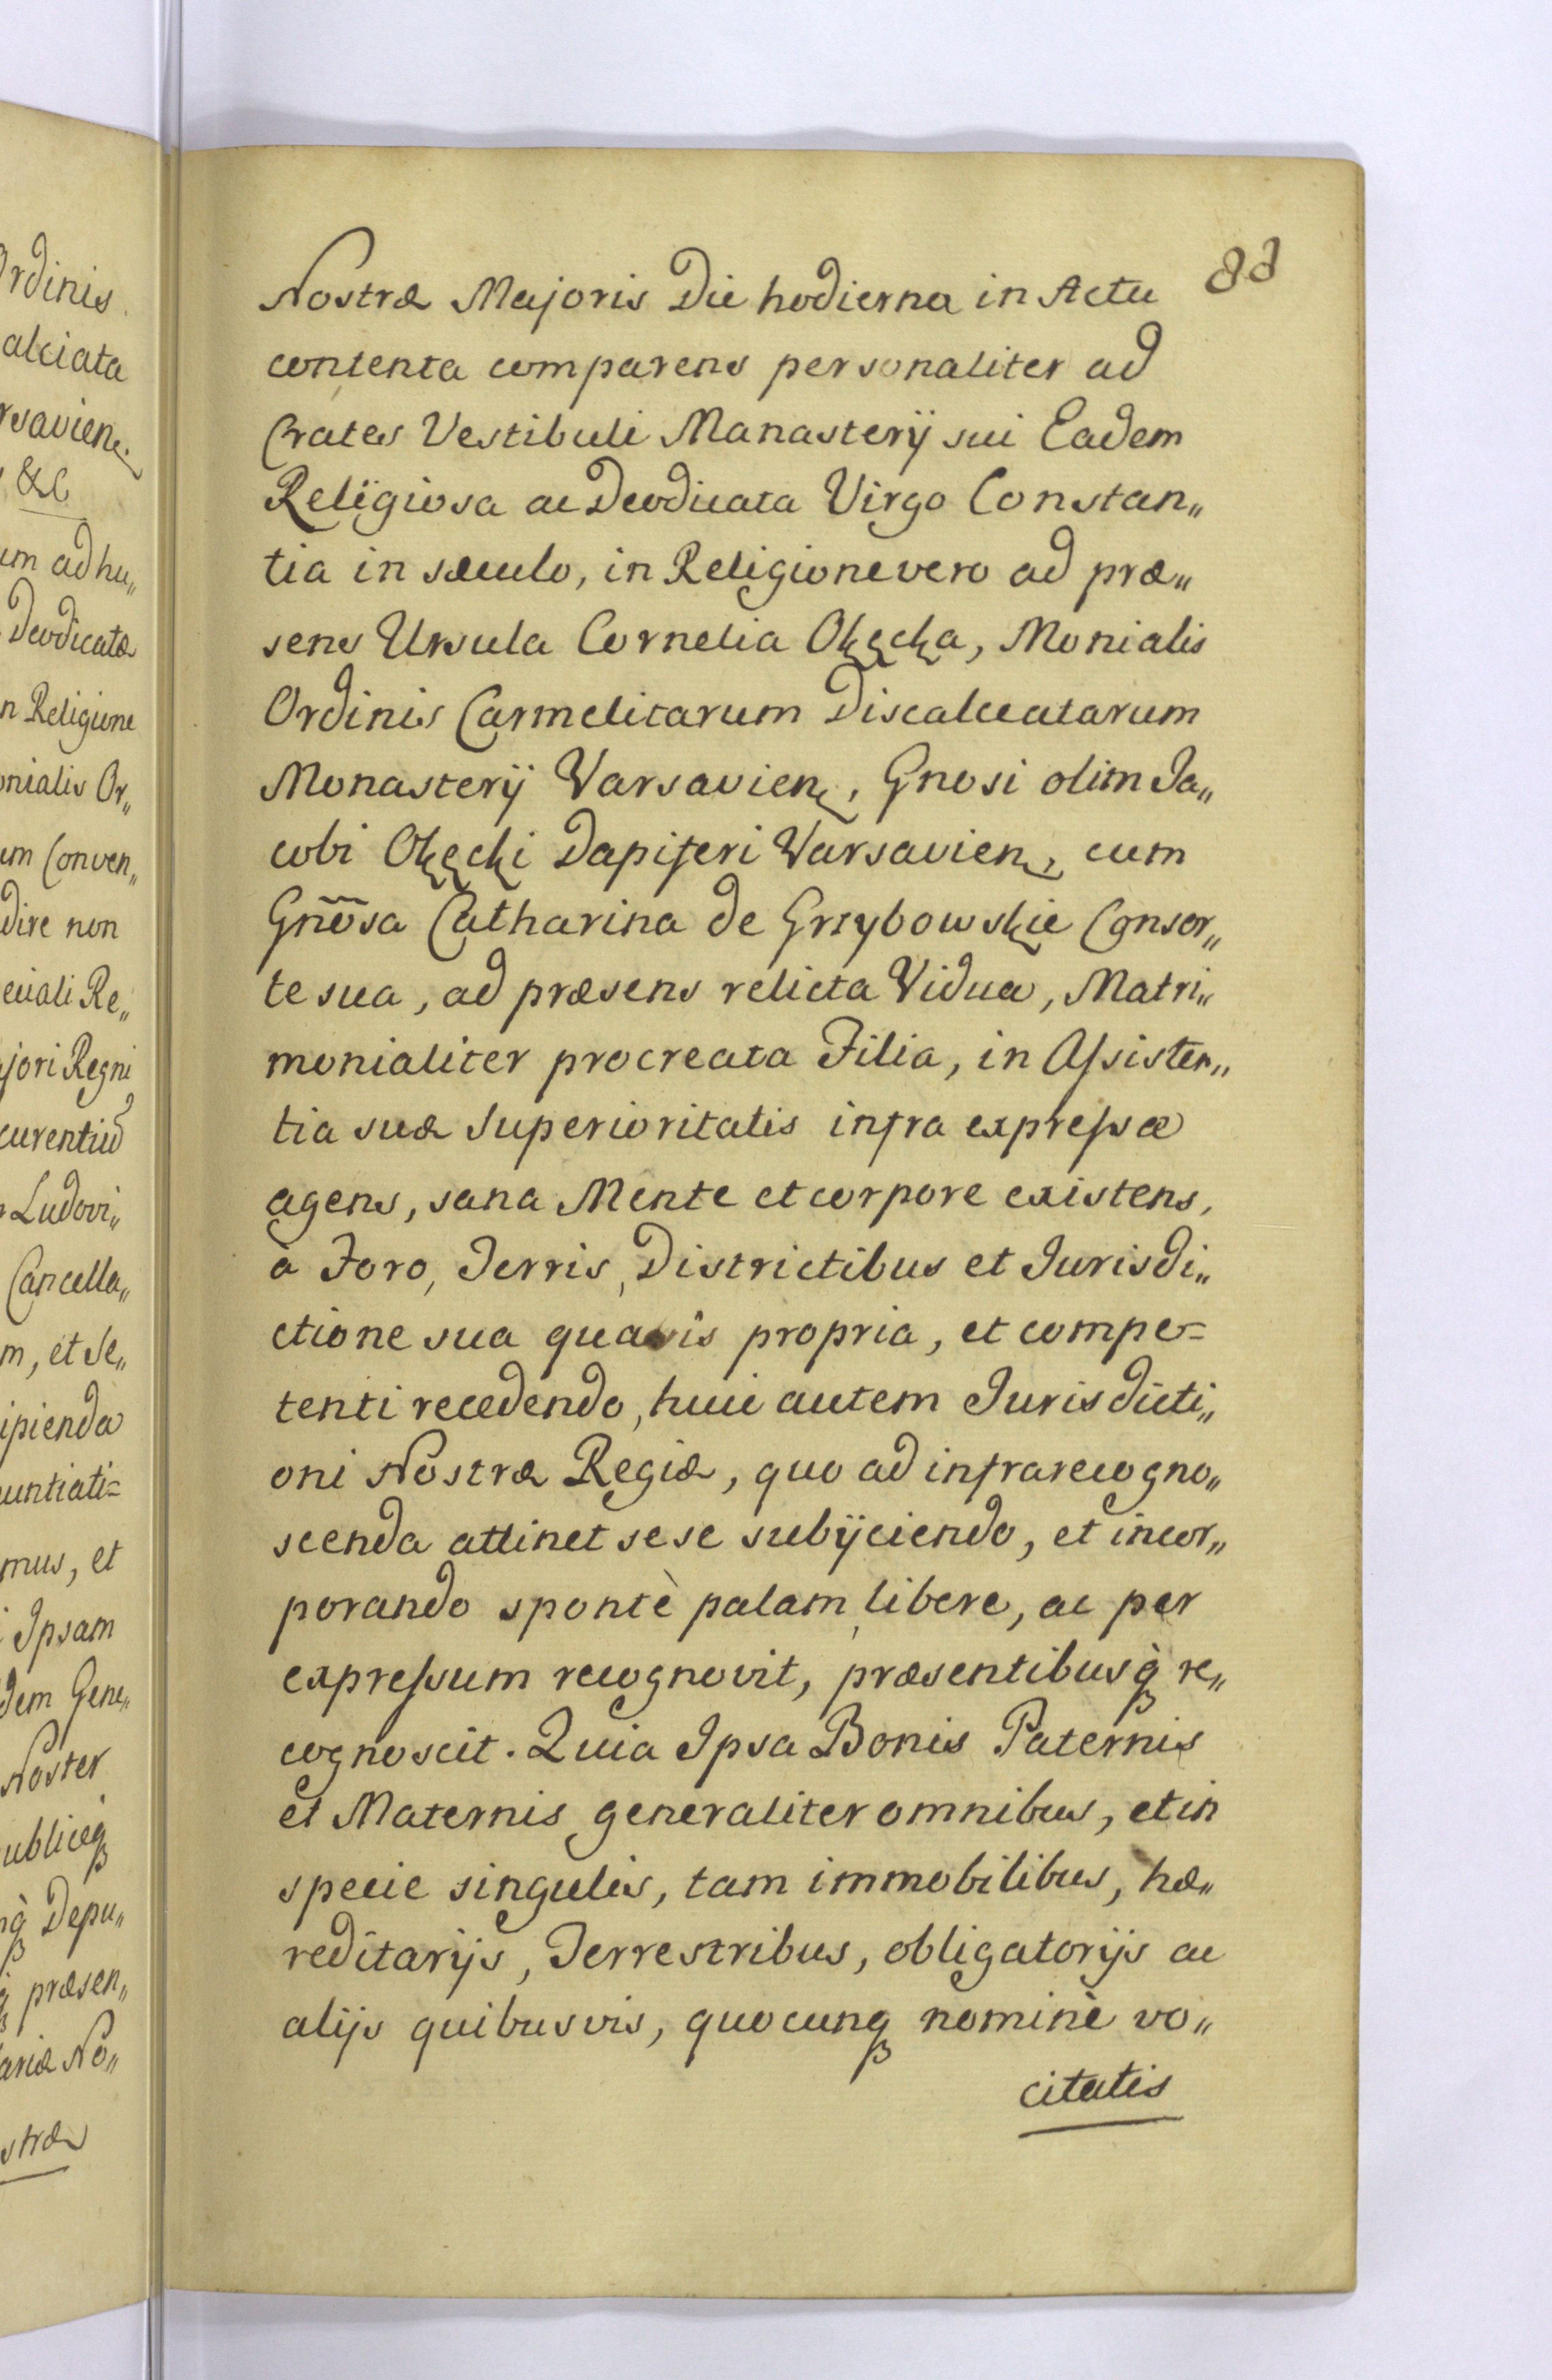 rdinis
alciata
rsavien.
&C
um ad hu„
Deodicatæ
n Religione
onialis Or„
um Conven„
dire non
eciali Re„
ajori Regni
curentiu
Ludovi„
Cancella„
m, et Se„
ipienda
untiati=
mus, et
Ipsam
dem Gene„
Noster
ublicæq
nq̀ Depu„
q̀ præsen„
ariæ No„
stræ
88
Nostræ Majoris Die hodierna in Actu
contenta comparens personaliter ad
Crates Vestibuli Manasterÿ sui Eadem
Religiosa ac Deodicata Virgo Constan„
tia in sæculo, in Religione vero ad præ„
sens Ursula Cornelia Okęcka, Monialis
Ordinis Carmelitarum Discalceatarum
Monasterÿ Varsavien, Gnosi olim Ja„
cobi Okęcki Dapiferi Varsavien, cum
Gnõsa Catharina de Grzybowskie Consor„
te sua, ad præsens relicta Vidua, Matri„
monialiter procreata Filia, in Assisten„
tia suæ Superioritatis infra expressæ
agens, sana Mente et corpore existens,
à Foro, Terris, Districtibus et Jurisdi„
ctione sua quavis propria, et compe=
tenti recedendo, huic autem Jurisdicti„
oni Nostræ Regiæ, quo ad infrarecogno„
scenda attinet sese subÿciendo, et incor„
porando spontè palam, libere, ac per
expressum recognovit, præsentibusq̀ re„
cognoscit. Quia Ipsa Bonis Paternis
et Maternis generaliter omnibus, et in
specie singulis, tam immobilibus, hæ„
reditarijs, Terrestribus, obligatorijs ac
alijs quibusvis, quocunq nominè vo„
citatis